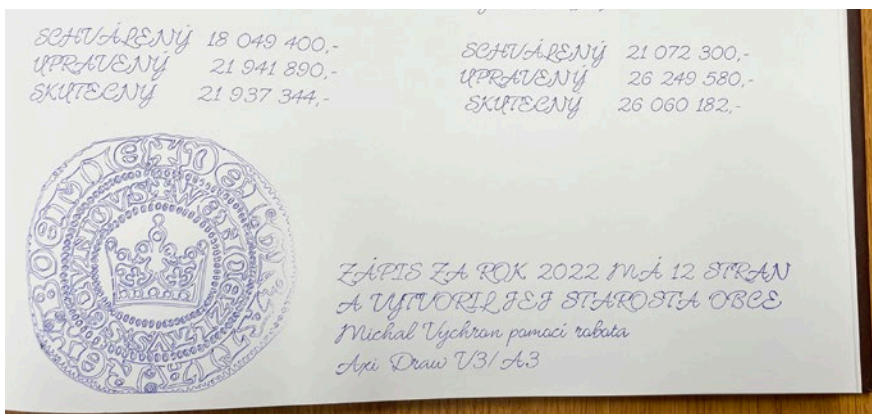 SCHVÁLENÝ 18 049 400,-
UPRAVENÝ 21 941 890,-
SKUTECNÝ 21 937 344,-
SCHVÁLENÝ 21 072 300,-
UPRAVENÝ 26 249 580,-
SKUTECNÝ 26 060 182,-
ZÁPIS ZA ROK 2022 MÁ 12 STRAN
A VYTVORIL JEJ STAROSTA OBCE
Michal Vychron pomocí robota
Axi Draw V3/A3